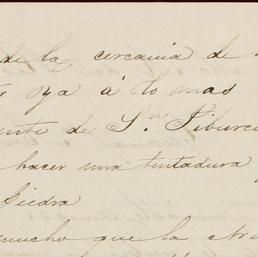 de la cercania de
oya á lo mas
ente de Sn Tiburcio
hacer una tentadura
Piedra
mucho que la atri